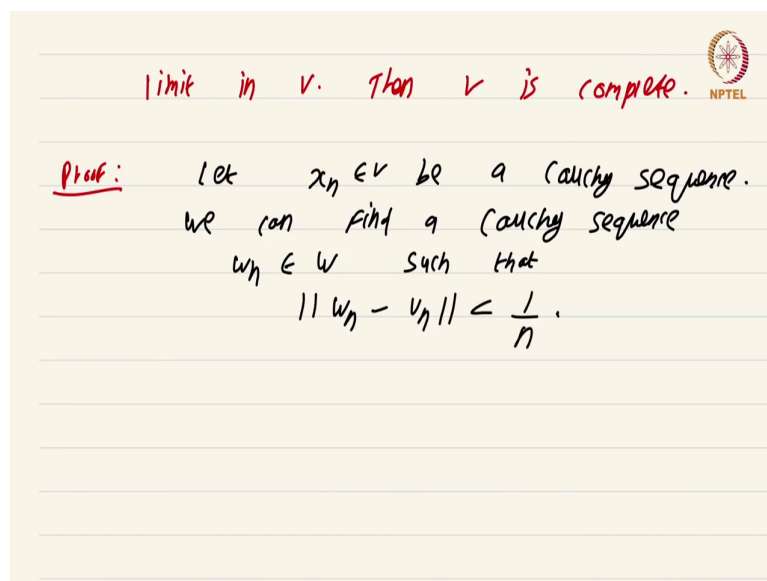 limit in V. Then V is complete.
NPTEL
Proof: Let xₙ ∈ V be a Cauchy sequence.
we can find a Cauchy sequence
wₙ ∈ W such that
|| wₙ - vₙ || < 1/n.